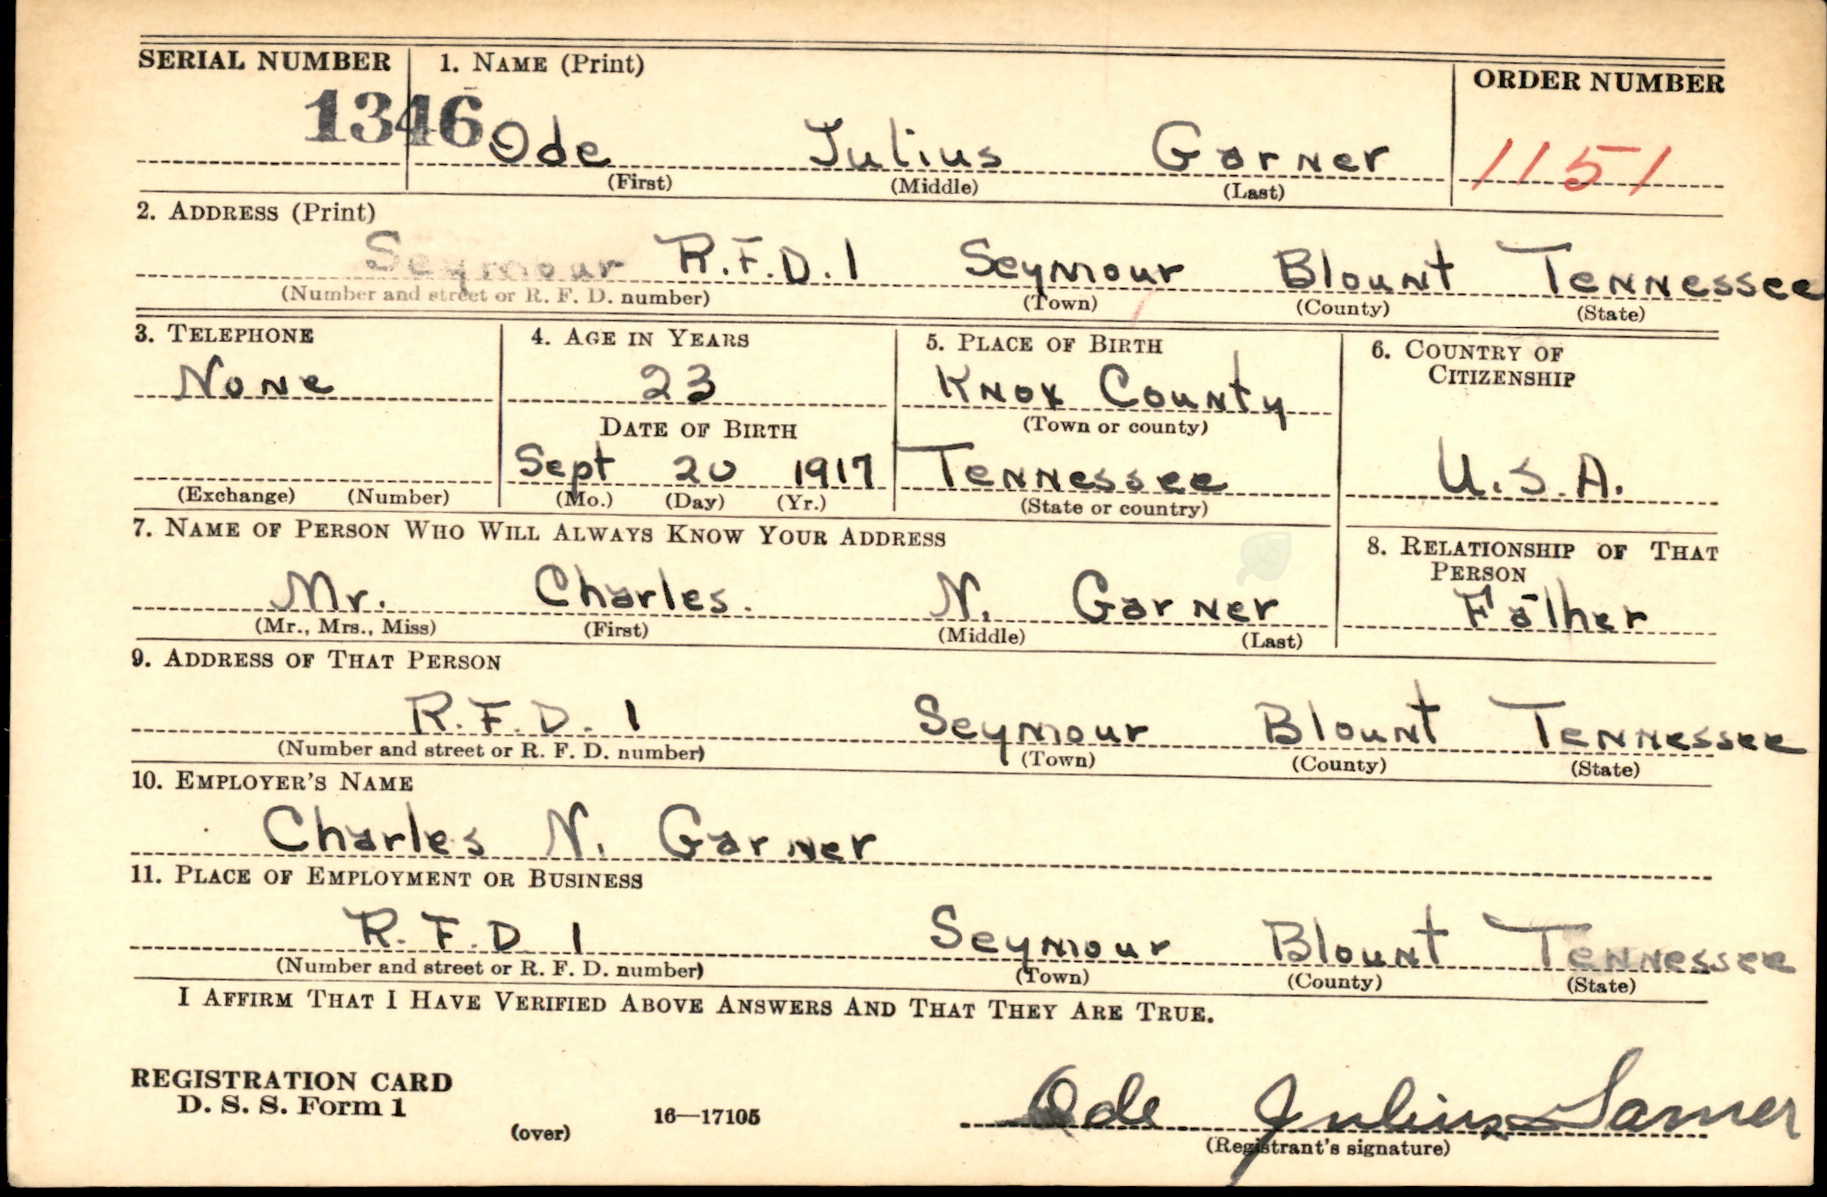 SERIAL NUMBER 1. NAME (Print) ORDER NUMBER
1346 Ode Julius Garner 1151
(First) (Middle) (Last)
2. ADDRESS (Print)
Seymour R.F.D. 1 Seymour Blount Tennessee
(Number and street or R. F. D. number) (Town) (County) (State)
3. TELEPHONE 4. AGE IN YEARS 5. PLACE OF BIRTH 6. COUNTRY OF
CITIZENSHIP
None 23 Knox County
DATE OF BIRTH (Town or county)
Sept 20 1917 Tennessee U.S.A.
(Exchange) (Number) (Mo.) (Day) (Yr.) (State or country)
7. NAME OF PERSON WHO WILL ALWAYS KNOW YOUR ADDRESS 8. RELATIONSHIP OF THAT
PERSON
Mr. Charles. N. Garner Father
(Mr., Mrs., Miss) (First) (Middle) (Last)
9. ADDRESS OF THAT PERSON
R.F.D. 1 Seymour Blount Tennessee
(Number and street or R. F. D. number) (Town) (County) (State)
10. EMPLOYER'S NAME
Charles N. Garner
11. PLACE OF EMPLOYMENT OR BUSINESS
R.F.D 1 Seymour Blount Tennessee
(Number and street or R. F. D. number) (Town) (County) (State)
I AFFIRM THAT I HAVE VERIFIED ABOVE ANSWERS AND THAT THEY ARE TRUE.
REGISTRATION CARD
D. S. S. Form 1
(over) 16—17105 Ode Julius Garner
(Registrant's signature)